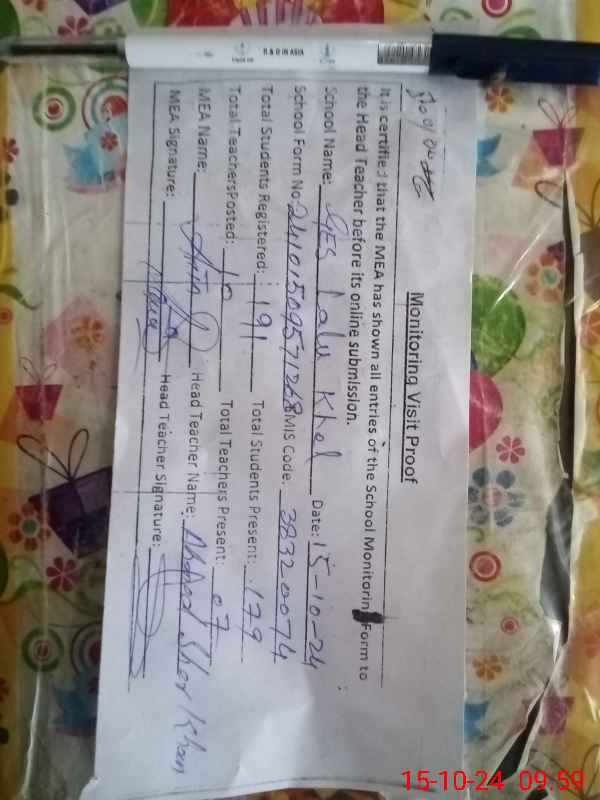 Monitoring Visit Proof
It is certified that the MEA has shown all entries of the School Monitorin Form to
the Head Teacher before its online submission.
School Name: GES Lalu Khel Date: 15-10-24
School Form No: 24101509571268 MIS Code: 38320074
Total Students Registered: 191 Total Students Present: 179
Total TeachersPosted: 10 Total Teachers Present: 07
MEA Name: Head Teacher Name: Sher Khan
MEA Signature: Head Teacher Signature:
15-10-24 09:59